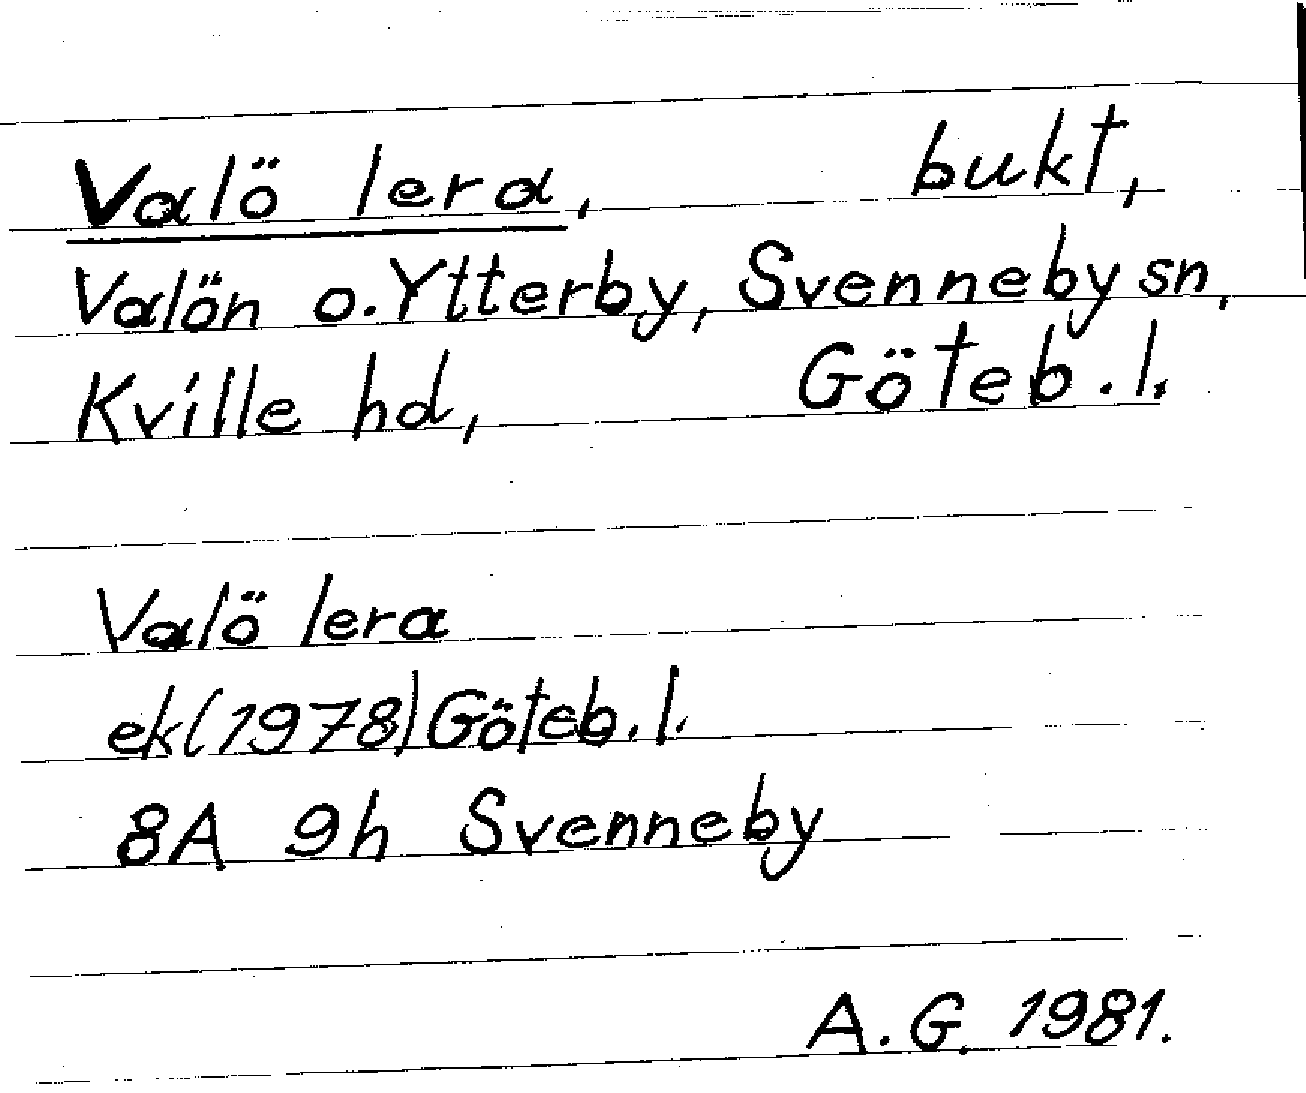 Valö lera, bukt,
Valön o. Ytterby, Svenneby sn,
Kville hd, Göteb. l.
Valö lera
ek (1978) Göteb. l.
8A 9h Svenneby
A. G. 1981.